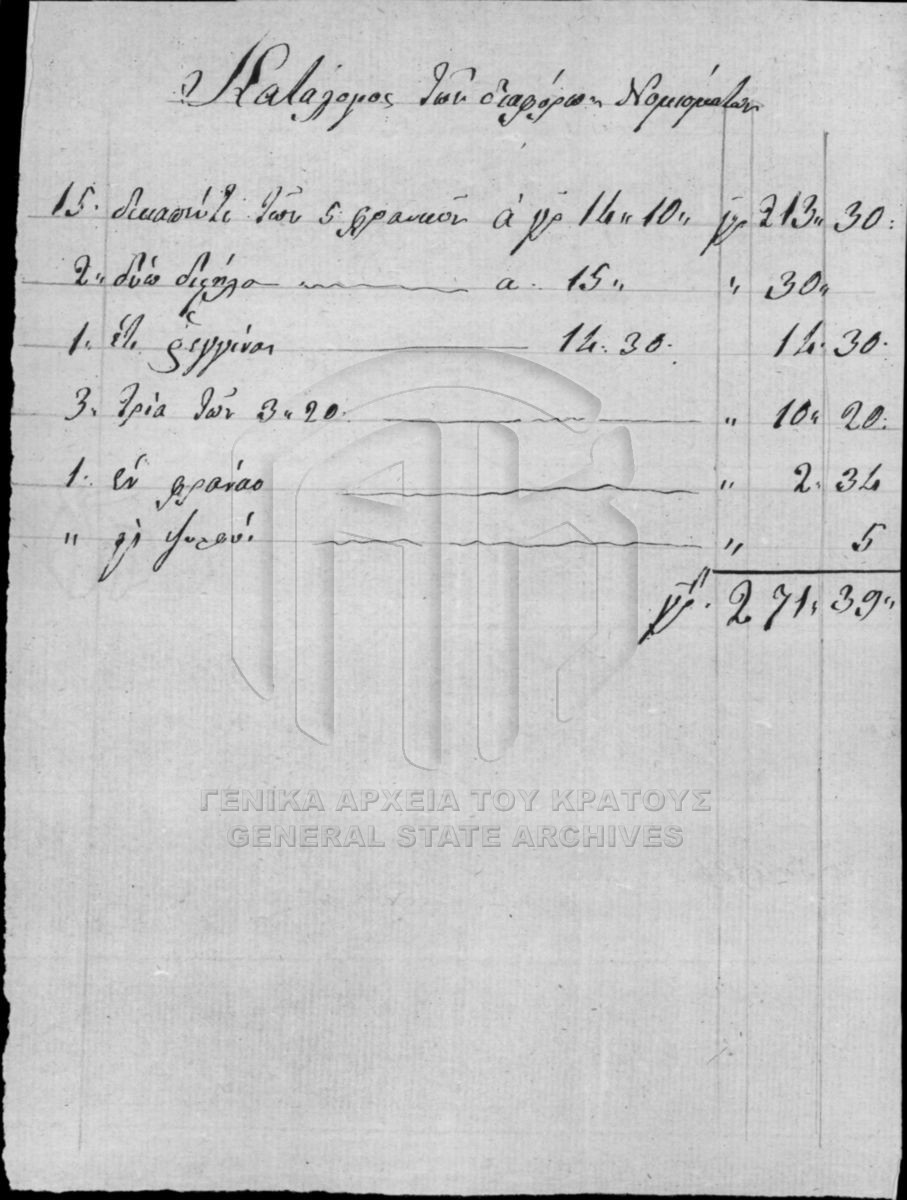 Κατάλογος τῶν διαφόρων Νομισμάτων
15. δεκαπέντε τῶν 5 φρανκῶν ἀ γρ 14" 10" γρ 213" 30:
2" δύω δίστηλα a. 15" " 30"
1. ἓν 14. 30. 14. 30.
3. τρία τῶν 3" 20. " 10" 20.
1. ἓν φράνκο " 2. 34
" " 5
γρ. 271" 39"
ΓΕΝΙΚΑ ΑΡΧΕΙΑ ΤΟΥ ΚΡΑΤΟΥΣ
GENERAL STATE ARCHIVES